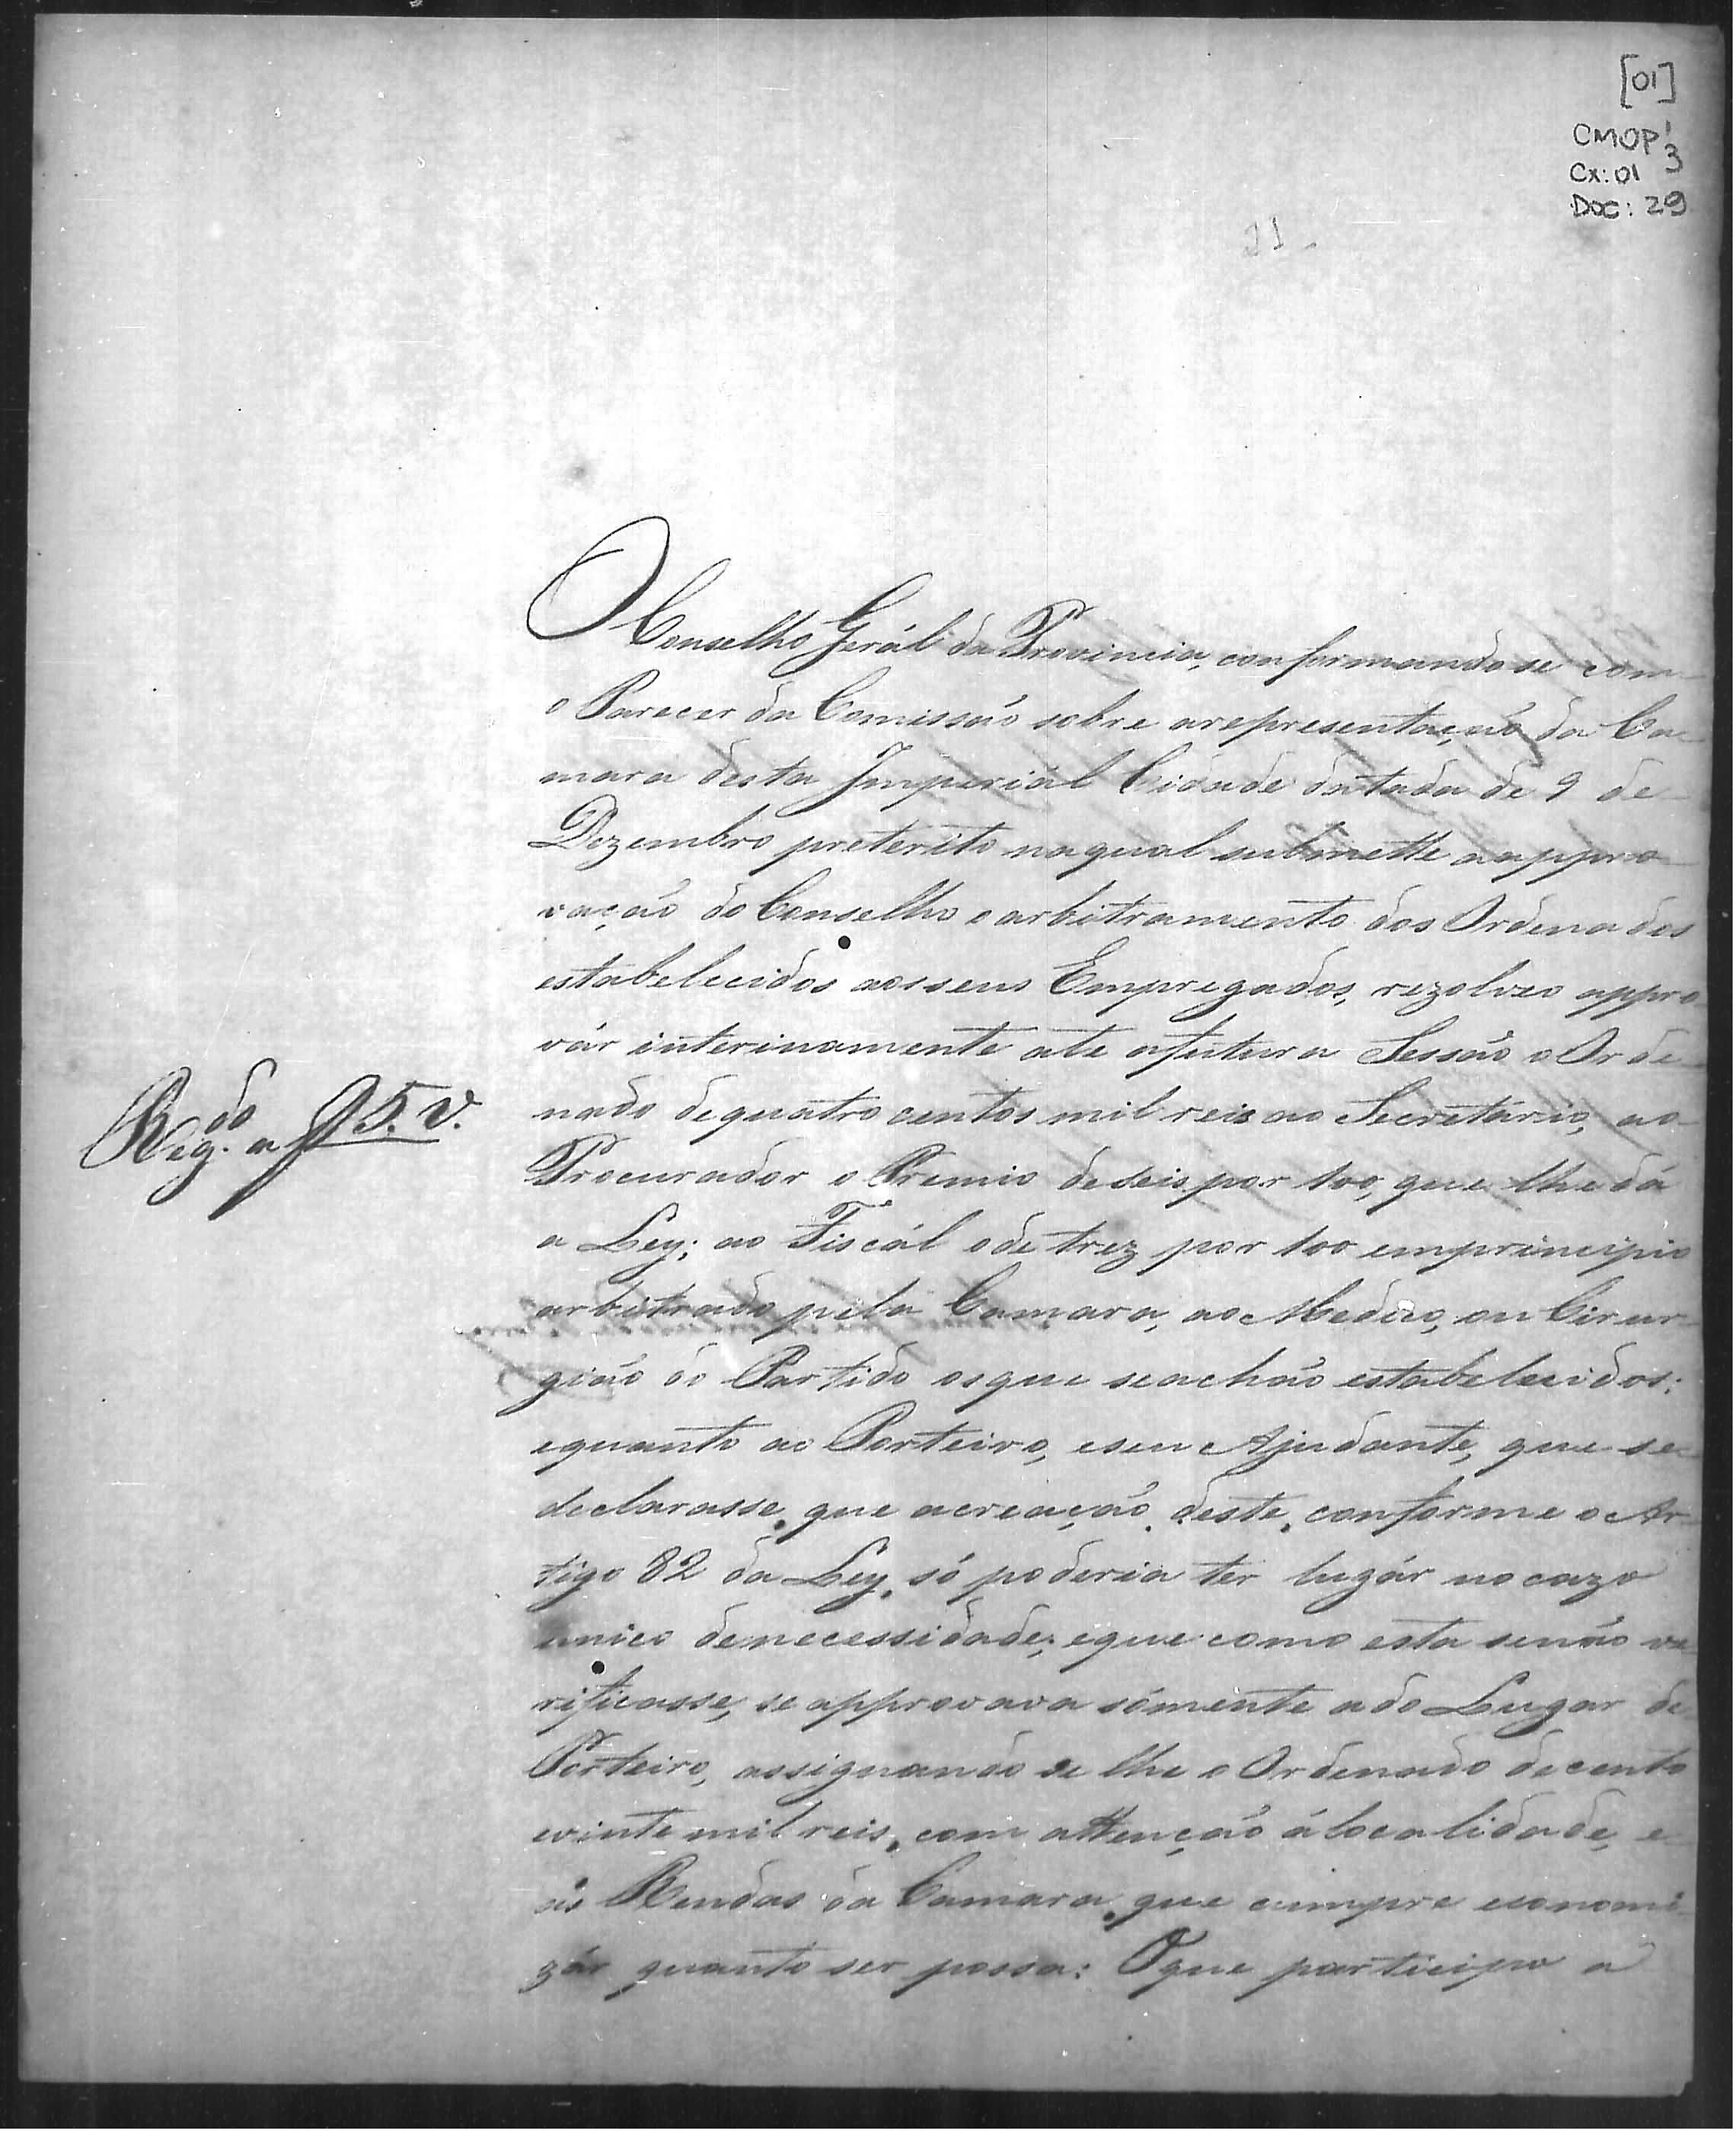 [01]
CMOP 1
3
Cx: 01
Doc: 29
21
O Conselho Gerál da Provincia, conformando se com
o Parecer da Comissaõ sobre a representaçaõ da Ca
mara desta Imperiál Cidade datada de 9 de
Dezembro preterito na qual submette a appro
vaçaõ do Conselho o arbitramento dos Ordenados
estabelecidos aos seus Empregados, rezolveo appro
vár interinamente ate a futura Sessaõ o Orde
nado de quatro centos mil reis ao Secretario, ao
Procurador o Premio de seis por 100, que lhe dá
a Ley; ao Fiscál o de trez por 100 em principio
arbitrado pela Camara, ao Medico, ou Cirur
giaõ do Partido os que se achaõ estabelecidos:
e quanto ao Porteiro, e seu Ajudante, que se
declarasse, que a creaçaõ deste, conforme o Ar
tigo 82 da Ley, só poderia ter lugár no cazo
unico de necessidade; e que como esta se naõ ve
rificasse, se approvava sómente a do Lugar de
Porteiro, assignando se lhe o Ordenado de cento
e vinte mil reis, com attençaõ á localidade, e
ás Rendas da Camara, que cumpre economi
zár quanto ser possa: O que participo a
Reg.do a f 95. v.